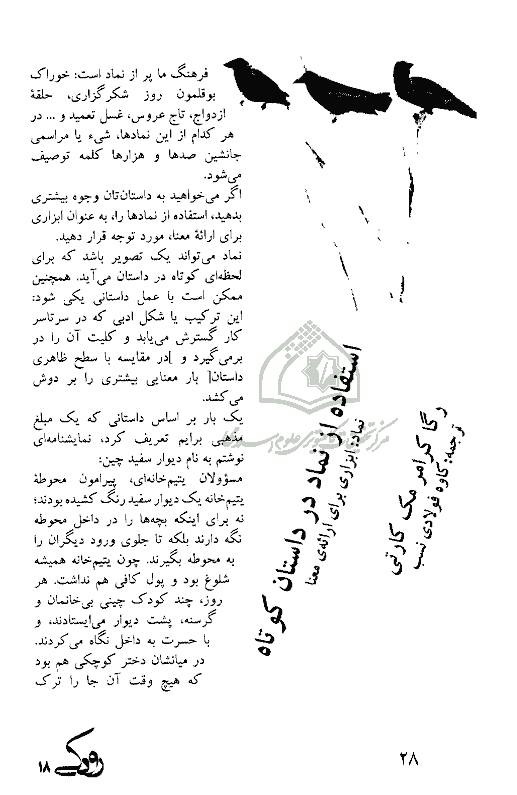 استفاده از نماد در داستان کوتاه
نماد: ابزاری برای ارائه‌ی معنا
رگا کرامر مک کارتی
ترجمه: کاوه فولادی نسب
فرهنگ ما پر از نماد است: خوراک
بوقلمون روز شکرگزاری، حلقهٔ
ازدواج، تاج عروس، غسل تعمید و ... در
هر کدام از این نمادها، شیء یا مراسمی
جانشین صدها و هزارها کلمه توصیف
می‌شود.
اگر می‌خواهید به داستان‌تان وجوه بیشتری
بدهید، استفاده از نمادها را، به عنوان ابزاری
برای ارائهٔ معنا، مورد توجه قرار دهید.
نماد می‌تواند یک تصویر باشد که برای
لحظه‌ای کوتاه در داستان می‌آید. همچنین
ممکن است با عمل داستانی یکی شود:
این ترکیب یا شکل ادبی که در سرتاسر
کار گسترش می‌یابد و کلیت آن را در
برمی‌گیرد و ]در مقایسه با سطح ظاهری
داستان[ بار معنایی بیشتری را بر دوش
می‌کشد.
یک بار بر اساس داستانی که یک مبلغ
مذهبی برایم تعریف کرد، نمایشنامه‌ای
نوشتم به نام دیوار سفید چین:
مسؤولان یتیم‌خانه‌ای، پیرامون محوطهٔ
یتیم‌خانه یک دیوار سفید رنگ کشیده بودند؛
نه برای اینکه بچه‌ها را در داخل محوطه
نگه دارند بلکه تا جلوی ورود دیگران را
به محوطه بگیرند. چون یتیم‌خانه همیشه
شلوغ بود و پول کافی هم نداشت. هر
روز، چند کودک چینی بی‌خانمان و
گرسنه، پشت دیوار می‌ایستادند، و
با حسرت به داخل نگاه می‌کردند.
در میانشان دختر کوچکی هم بود
که هیچ وقت آن جا را ترک
۲۸
رودکی ۱۸